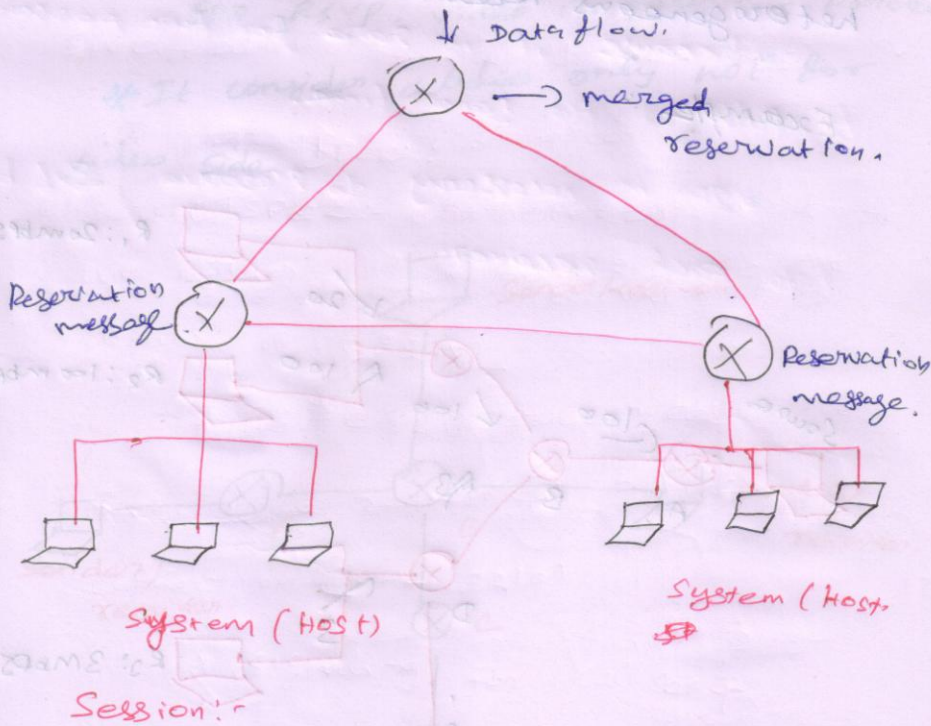 ↓ Data flow.
X
→ merged
reservation.
Reservation
message.
X
X
Reservation
message.
System (Host)
System (Host.
Session:-